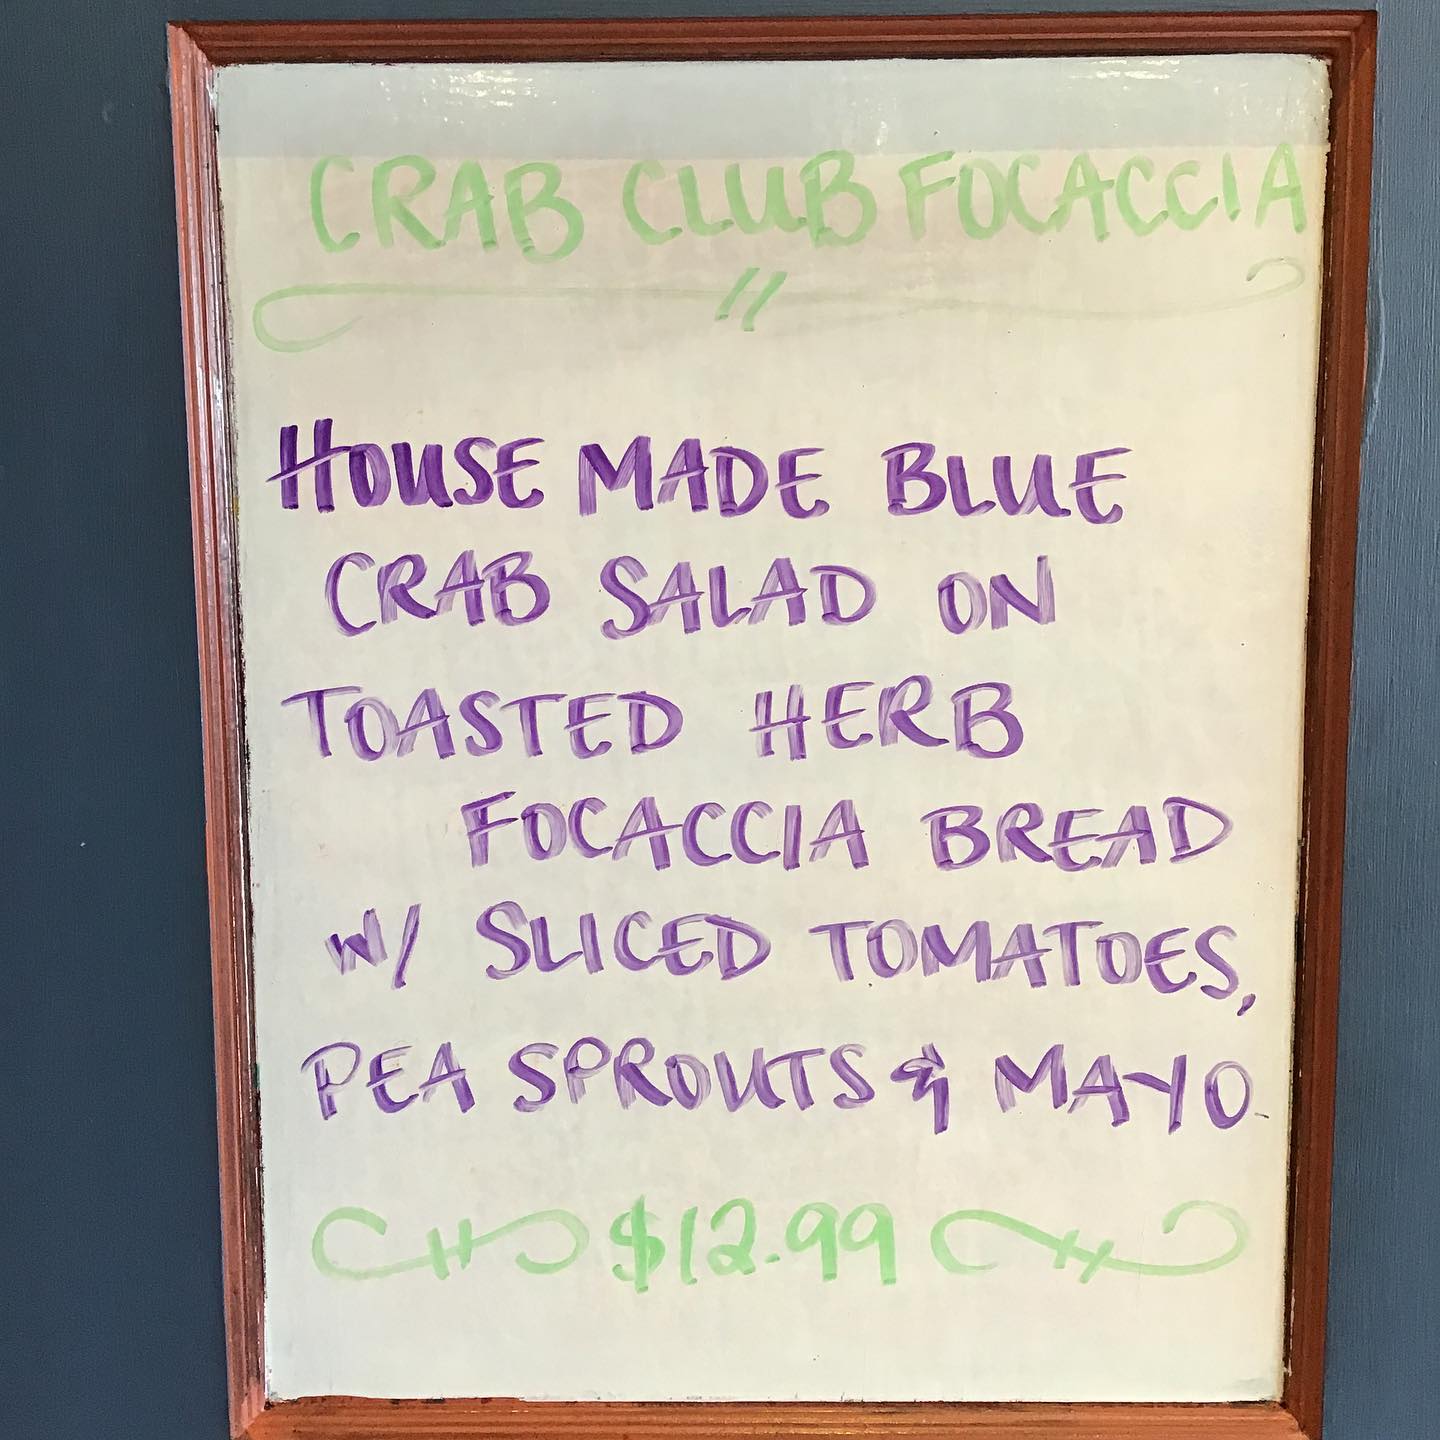 CRAB CLUB FOCACCIA
HOUSE MADE BLUE
CRAB SALAD ON
TOASTED HERB
FOCACCIA BREAD
W/ SLICED TOMATOES,
PEA SPROUTS & MAYO
$12.99